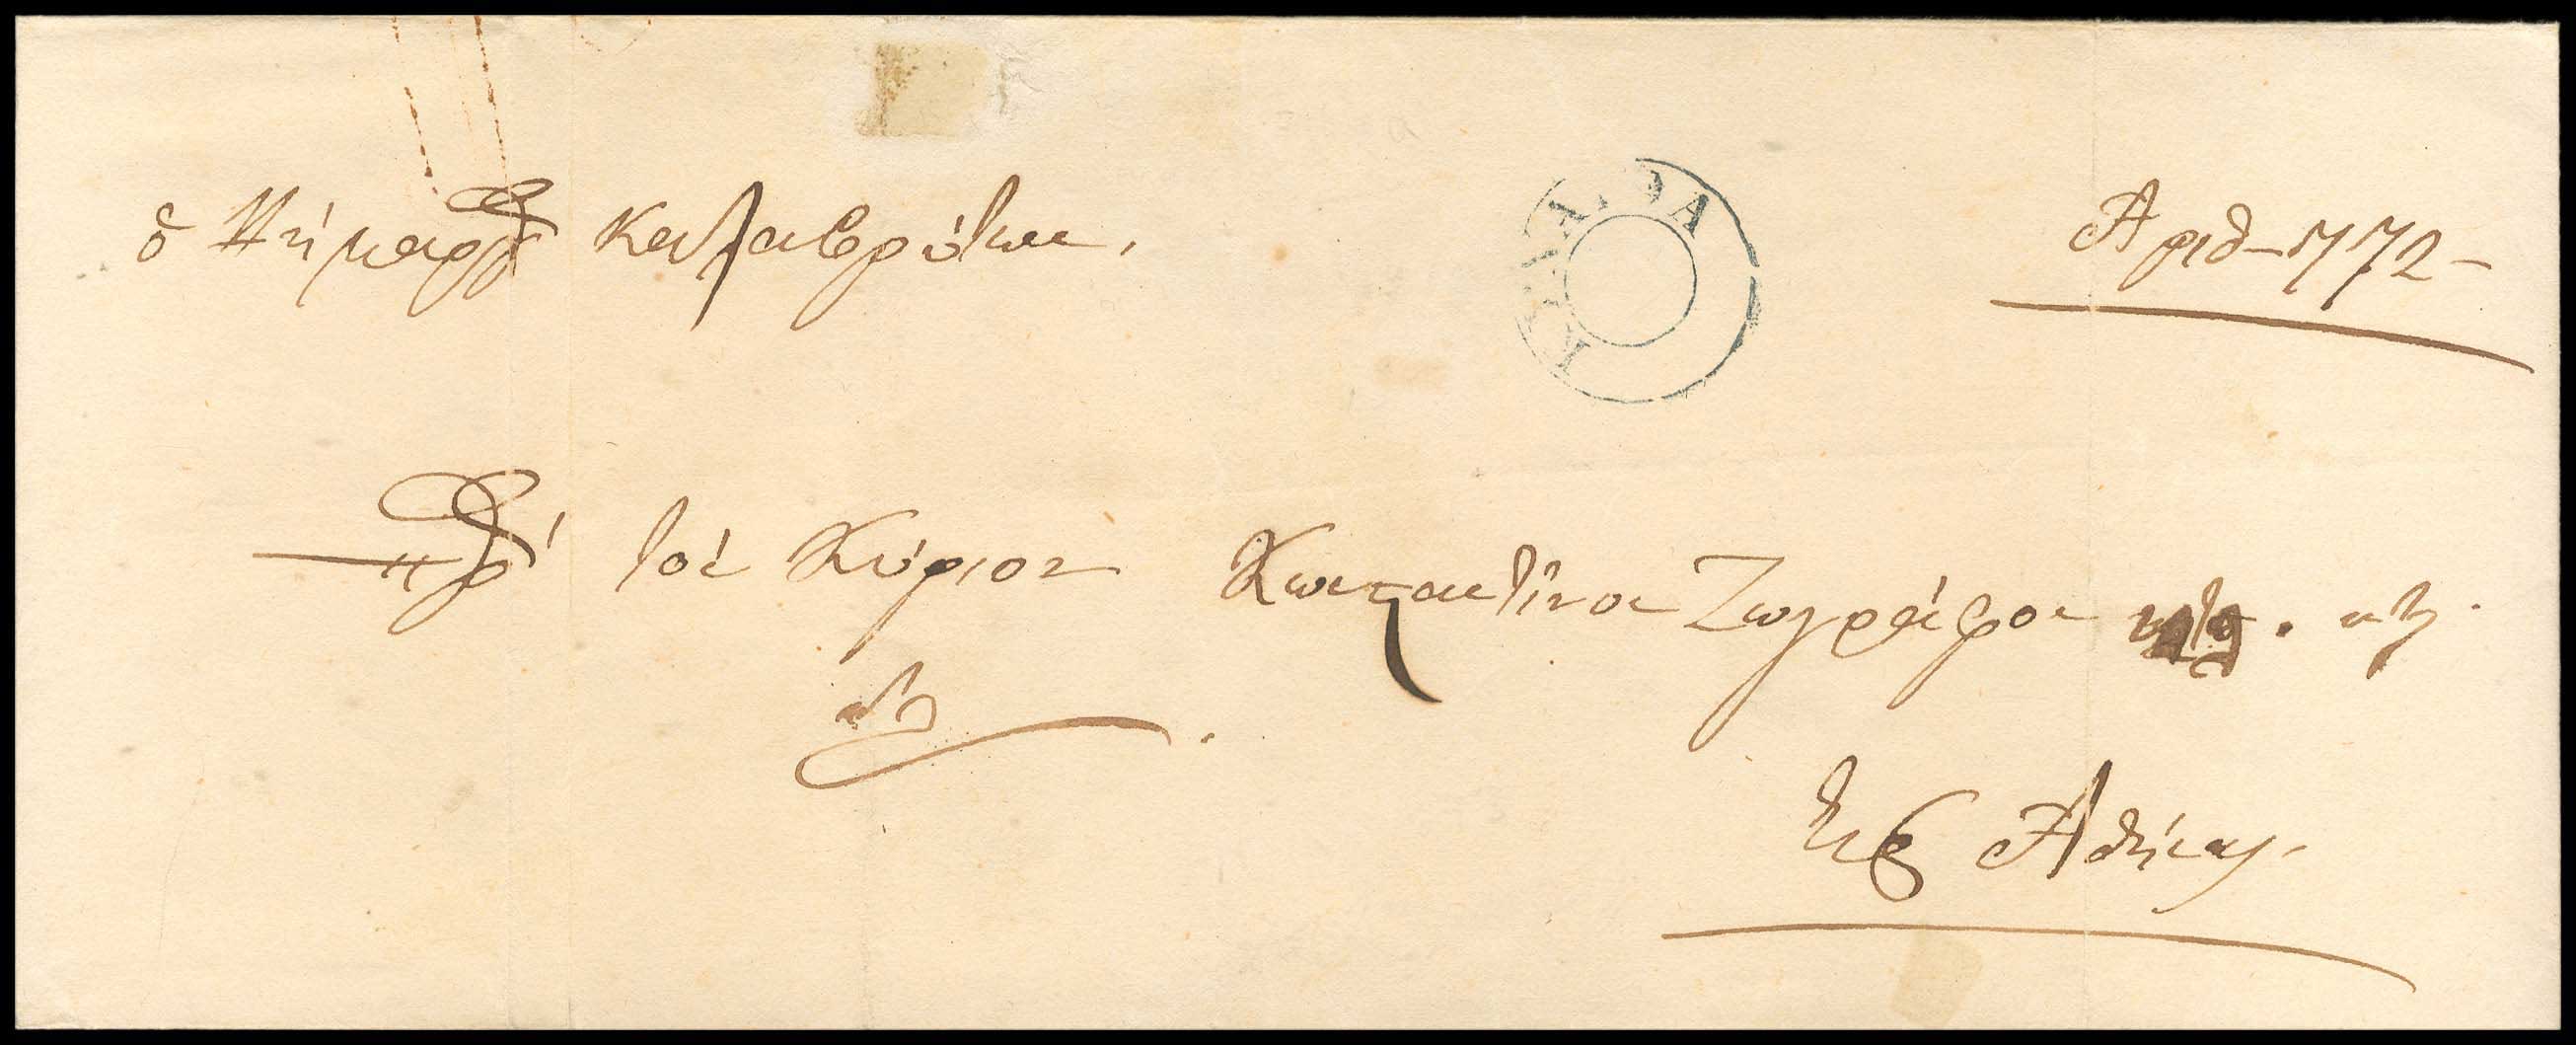 ὁ Δήμαρχος Καλαβρύτων.
Ἀριθ-1772-
Πρὸς τὸν Κύριον Κωνσταντῖνον Ζωγράφον
Εἰς Ἀθήνας.